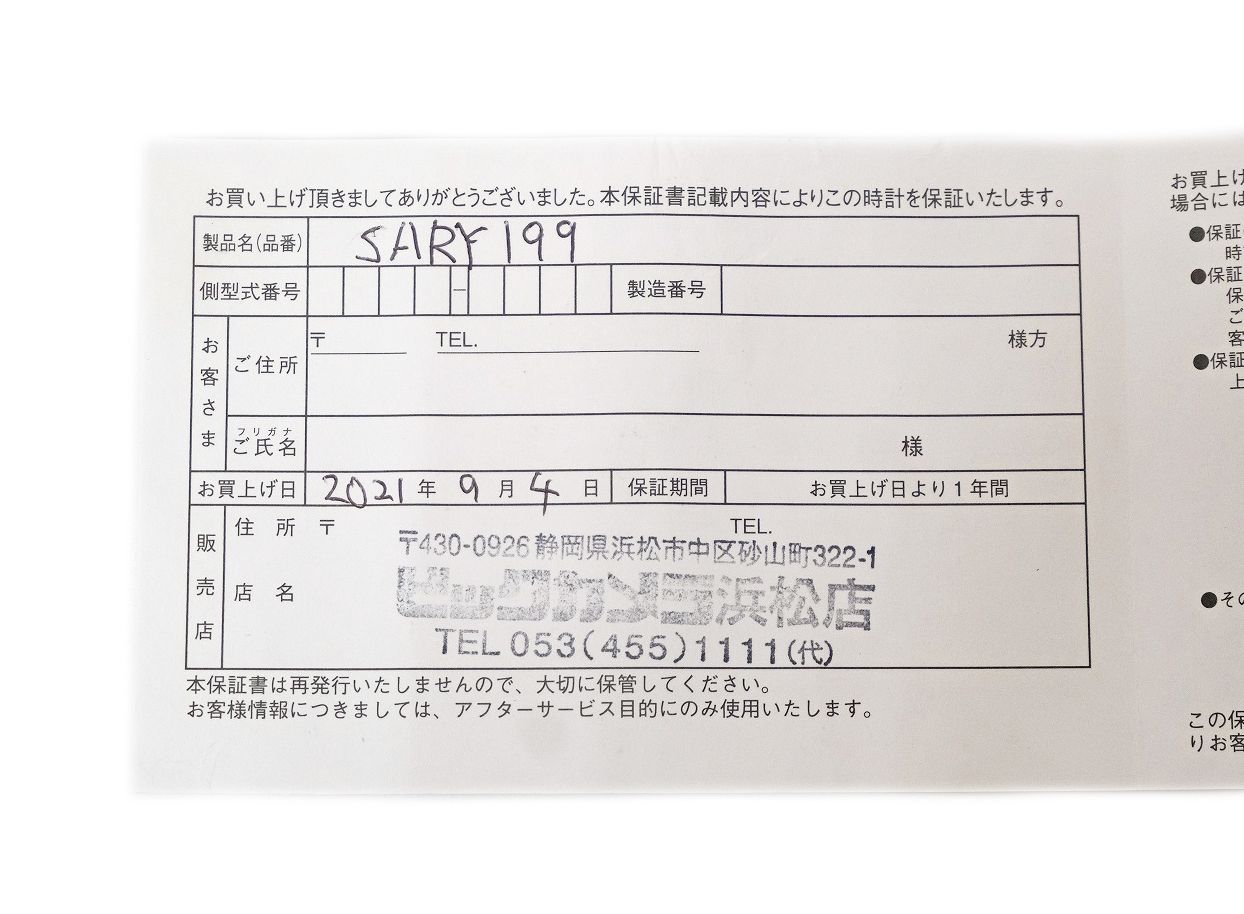 お買い上げ頂きましてありがとうございました。本保証書記載内容によりこの時計を保証いたします。
製品名(品番) SARY199
側型式番号 － 製造番号
お客さま
ご住所 〒 TEL. 様方
フリガナ
ご氏名 様
お買上げ日 2021 年 9 月 4 日 保証期間 お買上げ日より1年間
販売店
住 所 〒 TEL.
〒430-0926静岡県浜松市中区砂山町322-1
店 名 ビックカメラ浜松店
TEL 053(455)1111(代)
本保証書は再発行いたしませんので、大切に保管してください。
お客様情報につきましては、アフターサービス目的にのみ使用いたします。
お買上げ
場合には
●保証
時
●保証
保
ご
客
●保証
上
●その
この保
りお客